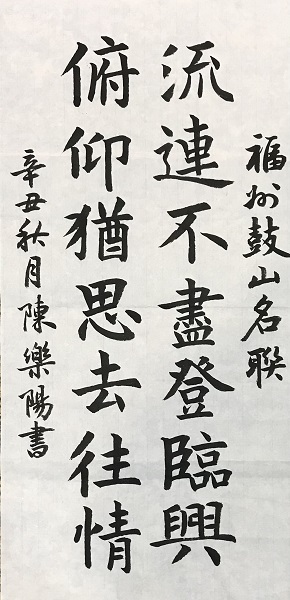 福州鼓山名聯
流連不盡登臨興
俯仰猶思去往情
辛丑秋月陳樂陽書